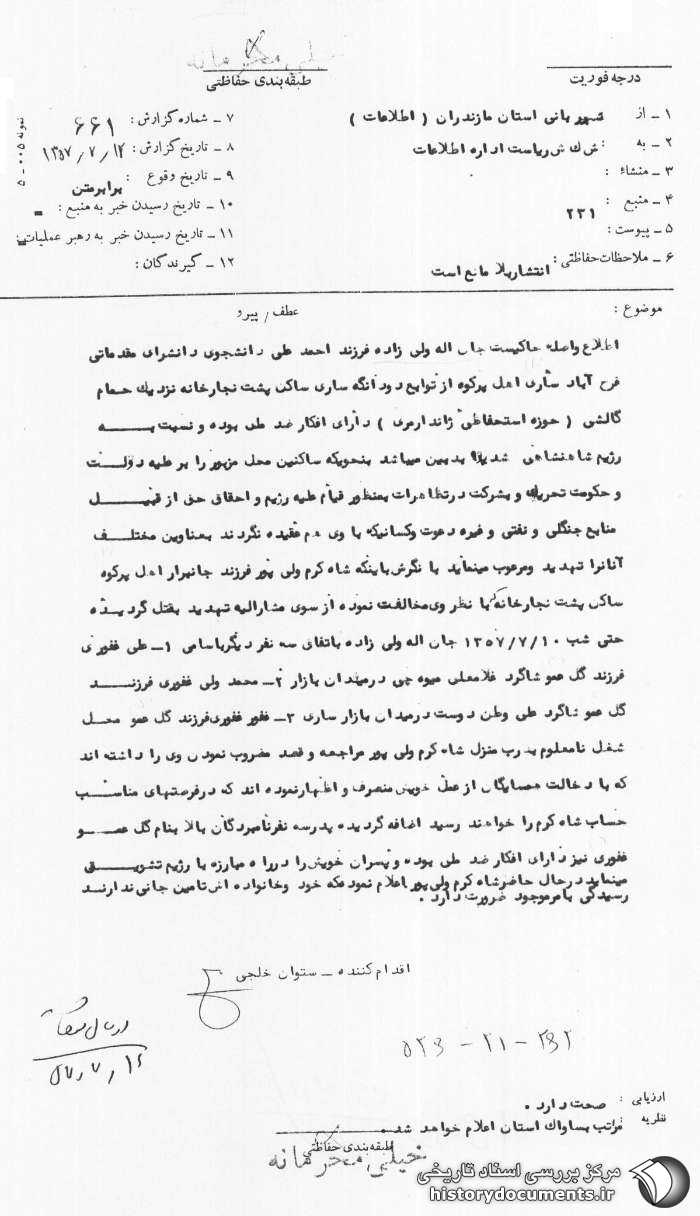 خیلی محرمانه
طبقه‌بندی حفاظتی
درجه فوریت
۱ ـ از شهربانی استان مازندران ( اطلاعات )
۲ ـ به : ش ك ش ریاست اداره اطلاعات
۳ ـ منشاء :
۴ ـ منبع : ۲۳۱
۵ ـ پیوست :
۶ ـ ملاحظات حفاظتی : انتشار بلا مانع است
۷ ـ شماره گزارش : ۶۶۱
۸ ـ تاریخ گزارش : ۱۳۵۷/۷/۱۲
۹ ـ تاریخ وقوع : برابر متن
۱۰ ـ تاریخ رسیدن خبر به منبع : ـ
۱۱ ـ تاریخ رسیدن خبر به رهبر عملیات : ـ
۱۲ ـ گیرندگان :
نمونه ۰۰۵ ـ ۵
موضوع : عطف / پیرو
اطلاع واصله حاکیست جان اله ولی زاده فرزند احمد علی دانشجوی دانشرای مقدماتی
فرح آباد ساری اهل پرکوه از توابع دودانگه ساری ساکن پشت نجارخانه نزدیك حمام
گالشی ( حوزه استحفاظی ژاندارمری ) دارای افکار ضد ملی بوده و نسبت بـــه
رژیم شاهنشاهی شدیدا بدبین میباشد بنحویکه ساکنین محل مزبور را بر علیه دولت
و حکومت تحریك و بشرکت در تظاهرات بمنظور قیام علیه رژیم و احقاق حق از قبیـــل
منابع جنگلی و نفتی و غیره دعوت وکسانیکه با وی هم عقیده نگردند بعناوین مختلـــف
آنانرا تهدید ومرعوب مینماید با نگرش باینکه شاه کرم ولی پور فرزند جانبرار اهل پرکوه
ساکن پشت نجارخانه که با نظر وی مخالفت نموده از سوی مشارالیه تهدید بقتل گردیـده
حتی شب ۱۳۵۷/۷/۱۰ جان اله ولی زاده باتفاق سه نفر دیگر باسامی ۱ـ علی غفوری
فرزند گل عمو شاگرد غلامعلی میوه چی در میدان بازار ۲ـ محمد ولی غفوری فرزنـــد
گل عمو شاگرد علی وطن دوست در میدان بازار ساری ۳ـ غفور غفوری فرزند گل عمو محـل
شغل نامعلوم بدرب منزل شاه کرم ولی پور مراجعه و قصد مضروب نمودن وی را داشته اند
که با دخالت همسایگان از عمل خویش منصرف و اظهارنموده اند که درفرصتهای مناسـب
حساب شاه کرم را خواهند رسید اضافه گردیده پدر سه نفرنامبردگان بالا بنام گل عمـــو
غفوری نیز دارای افکار ضد ملی بوده و پسران خویش را در راه مبارزه با رژیم تشویـــق
مینماید درحال حاضرشاه کرم ولی پور اعلام نموده که خود وخانواده اش تامین جانی ندارنـد
رسیدگی بامر موجود ضرورت دارد .
اقدام کننده ـ ستوان خلجی
۵۷/۷/۱۶
۲۹۲ - ۲۱ - ۵۲۹
ارزیابی : صحت دارد .
نظریه : مراتب بساواك استان اعلام خواهد شد .
طبقه‌بندی حفاظتی
خیلی محرمانه
مرکز بررسی اسناد تاریخی
historydocuments.ir